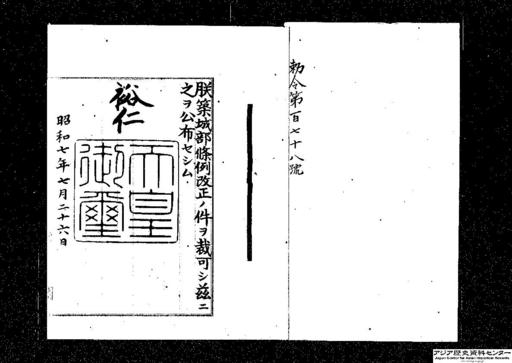 勅令第百七十八號
朕築城部條例改正ノ件ヲ裁可シ茲ニ
之ヲ公布セシム
裕仁
天皇
御璽
昭和七年七月二十六日
アジア歴史資料センター
Japan Center for Asian Historical Records